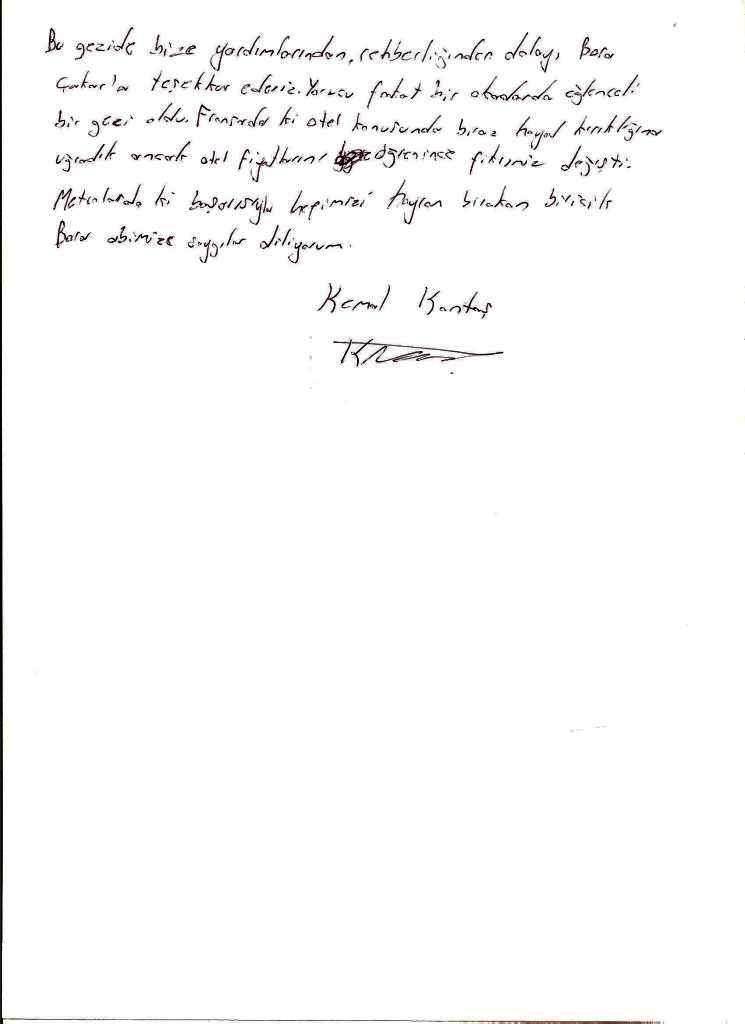 Bu gezide bize yardımlarından, rehberliğinden dolayı Bora
Çakar'a teşekkür ederiz. Yorucu fakat bir o kadarda eğlenceli
bir gezi oldu. Fransada ki otel konusunda biraz hayal kırıklığına
uğradık ancak otel fiyatlarını öğrenince fikrimiz değişti.
Metrolarda ki başarısıyla hepimizi hayran bırakan biricik
Bora abimize saygılar diliyorum.
Kemal Kantaş